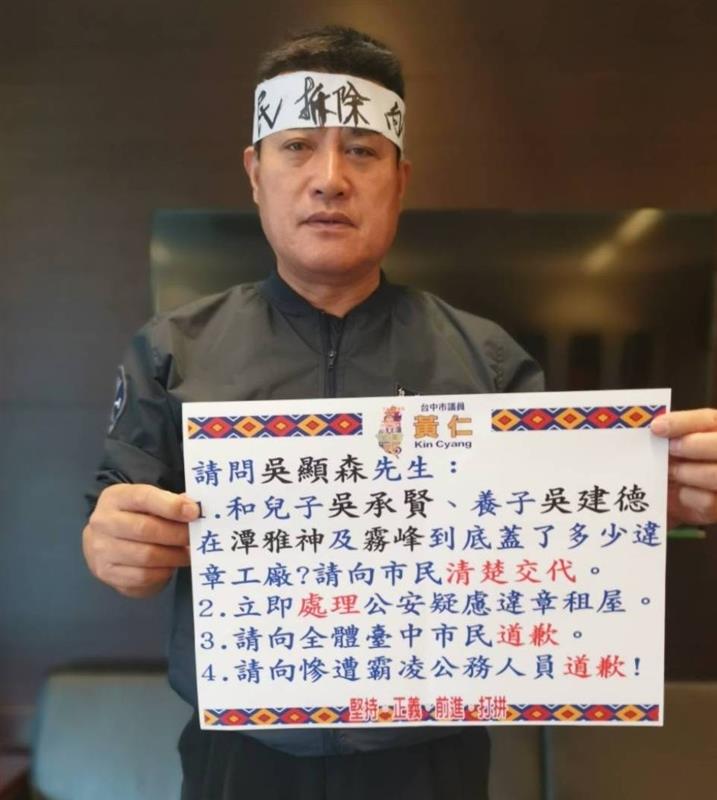 民 拆除 向
台中市議員
黃仁
Kin Cyang
請問吳顯森先生：
1.和兒子吳承賢、養子吳建德
在潭雅神及霧峰到底蓋了多少違
章工廠?請向市民清楚交代。
2.立即處理公安疑慮違章租屋。
3.請向全體臺中市民道歉。
4.請向慘遭霸凌公務人員道歉!
堅持·正義·前進·打拼